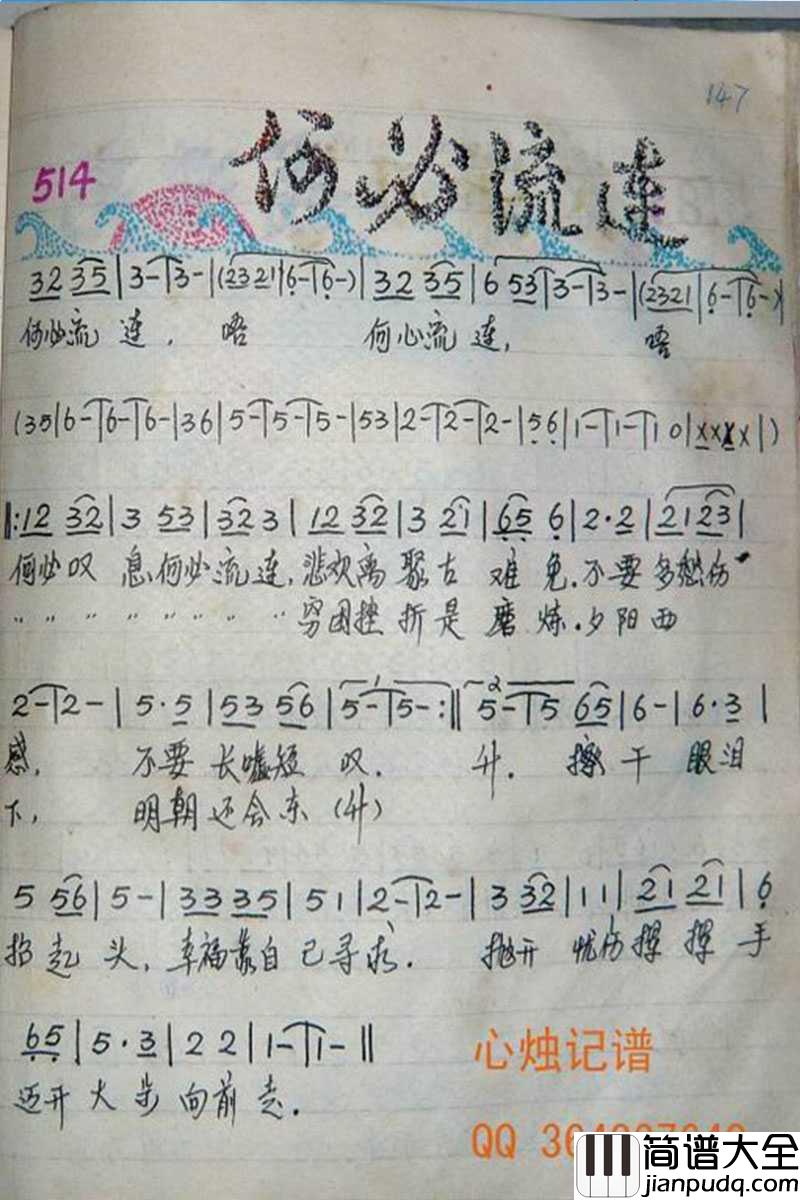 147
514
何必流连
32 35|3-|3-|(2321|6-|6-)|32 35|6 53|3-|3-|(2321|6-|6-)|
何必流 连, 唔 何必流 连, 唔
(35|6-|6-|6-|36|5-|5-|5-|53|2-|2-|2-|56|1-|1-|1 0|xxxx|)
‖:12 32|3 53|32 3|12 32|3 21|65 6|2·2|2123|
何必叹 息,何必流连,悲欢离 聚古 难 免.不要多愁伤
〃 〃 〃 〃 〃 〃 〃 〃 穷困挫 折是 磨 炼.夕阳西
2-|2-|5·5|53 56|1 5-|5-:‖2 5-|5 65|6-|6·3|
感, 不要 长嘘短 叹. 升. 擦 干 眼泪
下, 明朝 还会东 (升)
5 56|5-|33 35|51|2-|2-|3 32|11|21 21|6
抬 起 头, 幸福靠自 己寻求. 抛开 忧伤挥 挥 手
65|5·3|22|1-|1-‖
迈开 大 步 向前 走.
心烛记谱
简谱大全
jianpudq.com